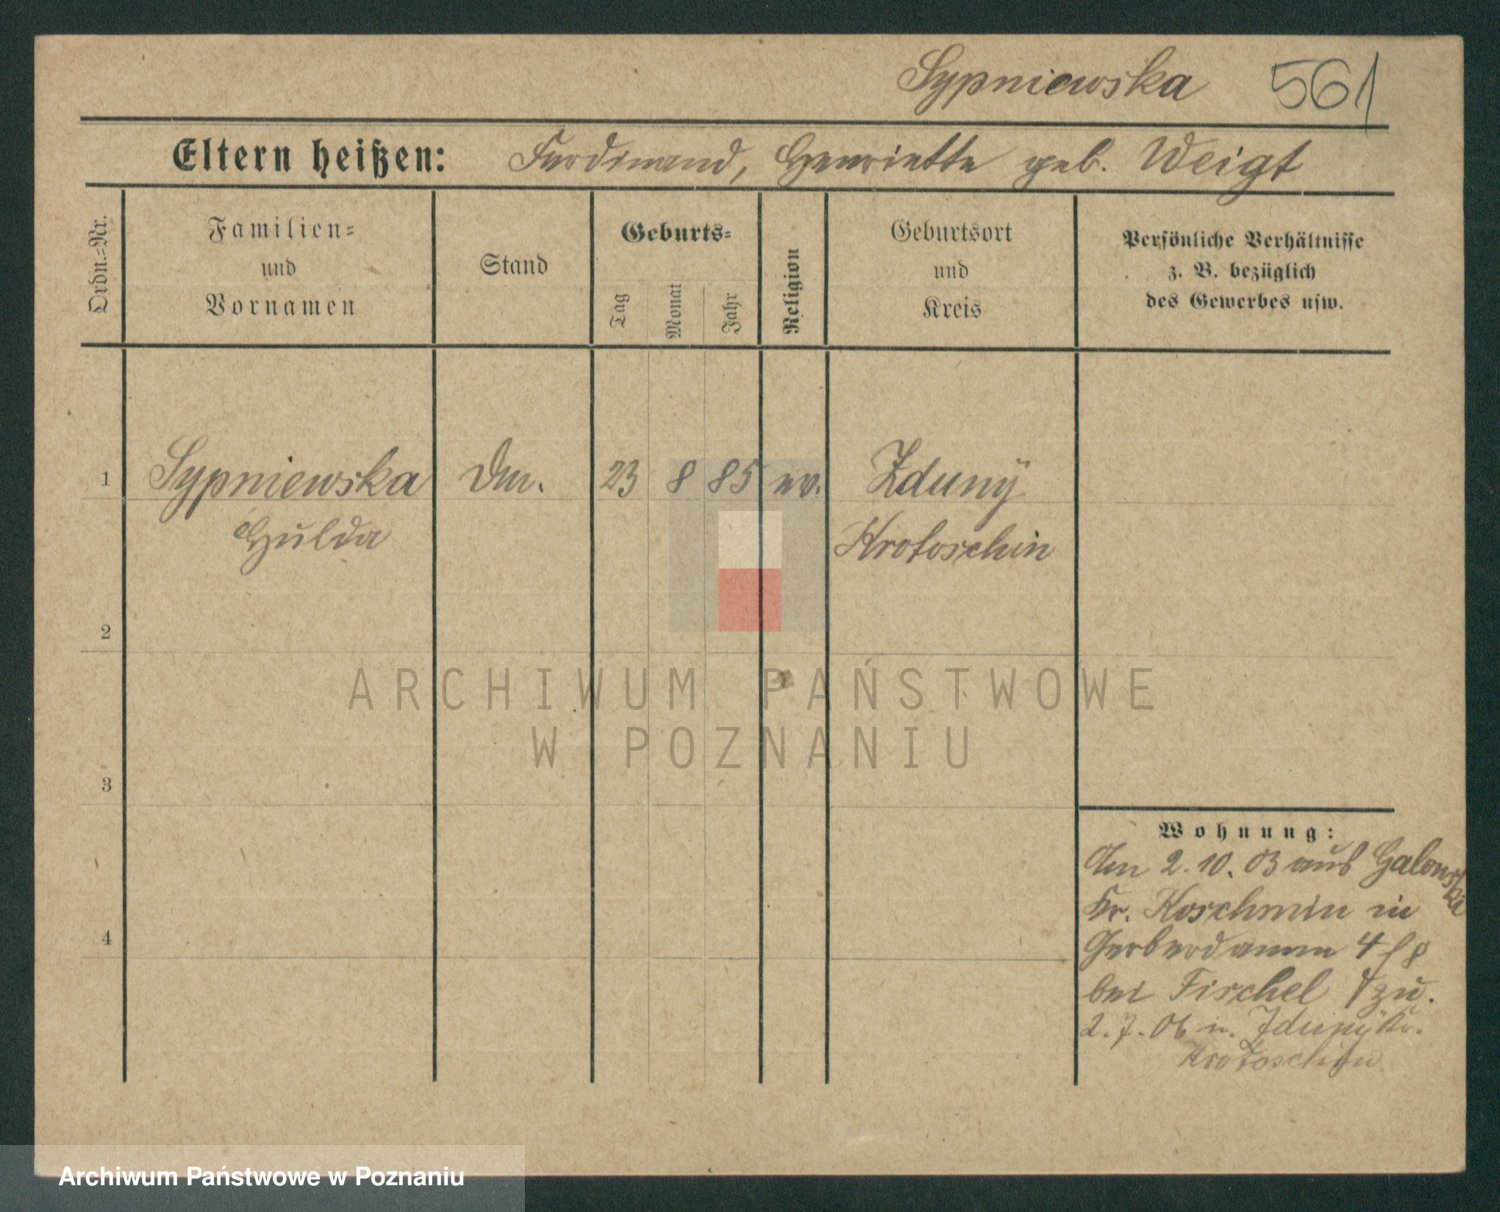 Sypniewska 561
Eltern heißen: Ferdinand, Henriette geb. Weigt
Ordn.=Nr.
Familien=
und
Vornamen
Stand
Geburts=
Tag
Monat
Jahr
Religion
Geburtsort
und
Kreis
Persönliche Verhältnisse
z. B. bezüglich
des Gewerbes usw.
1 Sypniewska 23 8 85 ev. Zduny
Hulda Krotoschin
2
3
4
Wohnung:
Am 2.10.03 aus
Kr. Koschmin in
Gerberdamm 4
bei Fischel zu.
2.7.06 n. Zduny Kr.
Krotoschin
ARCHIWUM PAŃSTWOWE
W POZNANIU
Archiwum Państwowe w Poznaniu